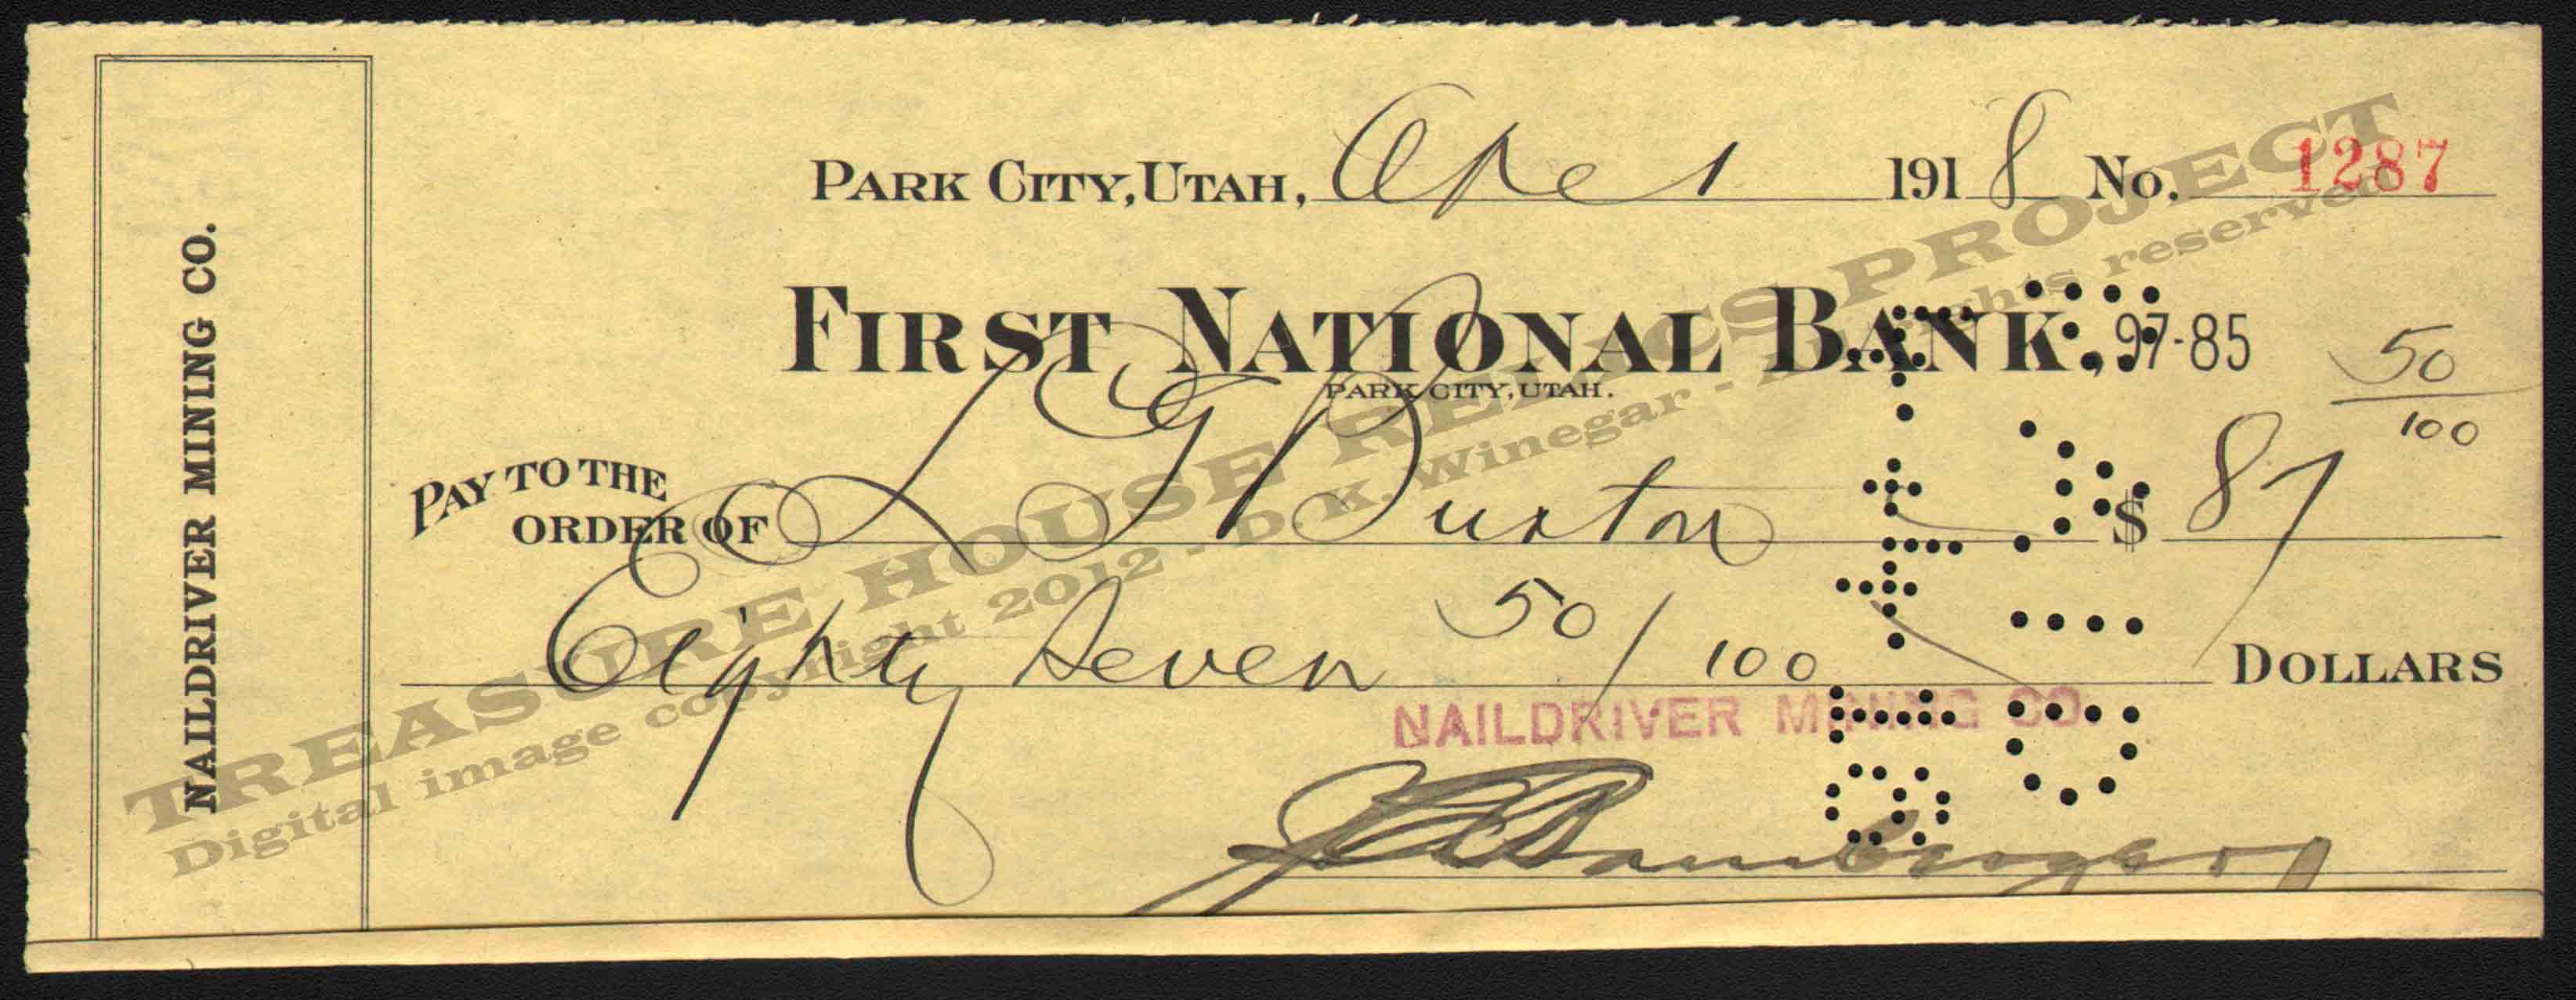 PARK CITY, UTAH, Apr 1 1918 No. 1287
FIRST NATIONAL BANK, 97-85
PARK CITY, UTAH.
50/100
PAY TO THE ORDER OF L G Burton $ 87
Eighty Seven 50/100 DOLLARS
NAILDRIVER MINING CO.
NAILDRIVER MINING CO.
TREASURE HOUSE RELICS PROJECT
Digital image copyright 2012 - D. K. Winegar - All rights reserved